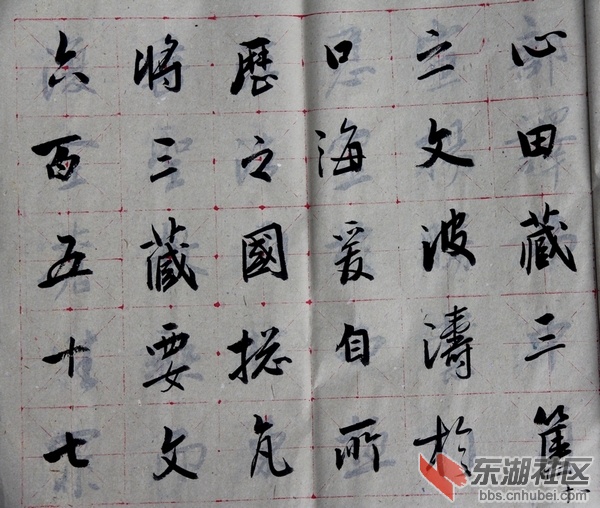 心田藏三篋
之文波濤於
口海爰自所
歷之國揔凡
將三藏要文
六百五十七
东湖社区
bbs.cnhubei.com